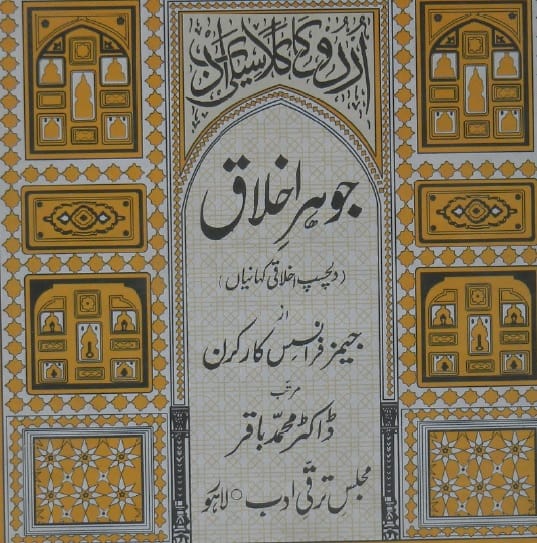 اردو کا کلاسیکی ادب
جوہرِ اخلاق
(دلچسپ اخلاقی کہانیاں)
از
جیمز فرانسس کارکرن
مرتب
ڈاکٹر محمد باقر
مجلسِ ترقیِ ادب ○ لاہور